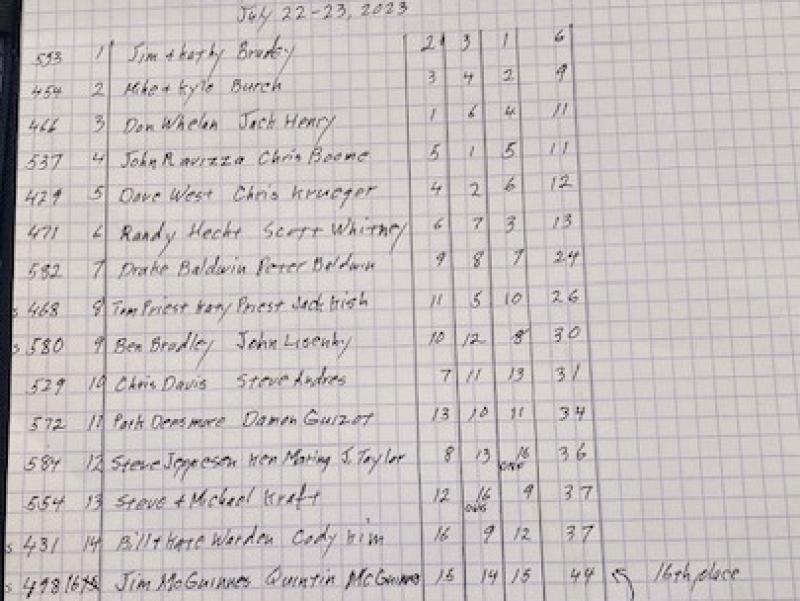 July 22-23, 2023
553 1 Jim + Kathy Bradley 2 3 1 6
454 2 Mike + Kyle Burch 3 4 2 9
466 3 Don Whelan Jack Henry 1 6 4 11
537 4 John Ravizza Chris Boome 5 1 5 11
429 5 Dave West Chris Krueger 4 2 6 12
471 6 Randy Hecht Scott Whitney 6 7 3 13
582 7 Drake Baldwin Peter Baldwin 9 8 7 24
s 468 8 Tom Priest Katy Priest Jack Kish 11 5 10 26
s 580 9 Ben Bradley John Lisenby 10 12 8 30
529 10 Chris Davis Steve Andres 7 11 13 31
572 11 Park Densmore Damon Guizot 13 10 11 34
584 12 Steve Jeppesen Ken Maring J. Taylor 8 13 16 36
554 13 Steve + Michael Kraft 12 16 9 37
s 431 14 Bill + Kate Worden Cody Kim 16 9 12 37
s 498 16th Jim McGuinnes Quintin McGuinnes 15 14 15 44 16th place